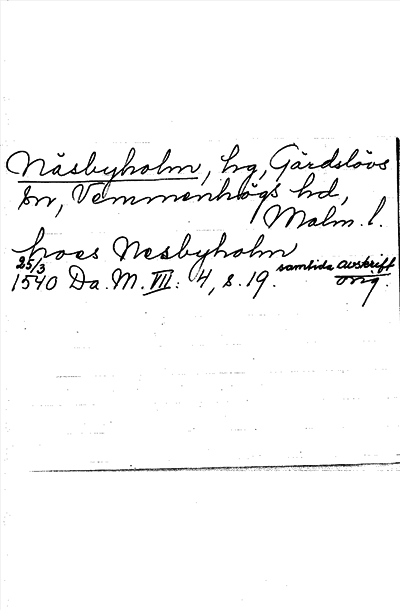 Näsbyholm, hg, Gärdslövs
sn, Vemmenhögs hd,
Malm. l.
hoes Nesbyholm
25/3 1540 Da. M. VII: 4, s. 19. samtida avskrift
orig.